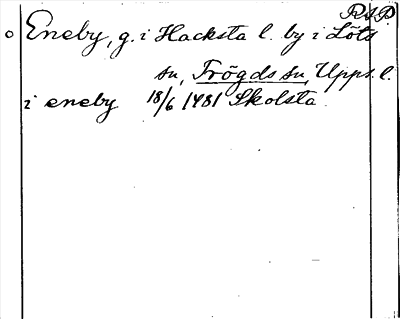 RAP
Eneby, g. i Hacksta l. by i Löts
sn, Trögds sn, Upps. l.
i eneby 18/6 1481 Skolsta.